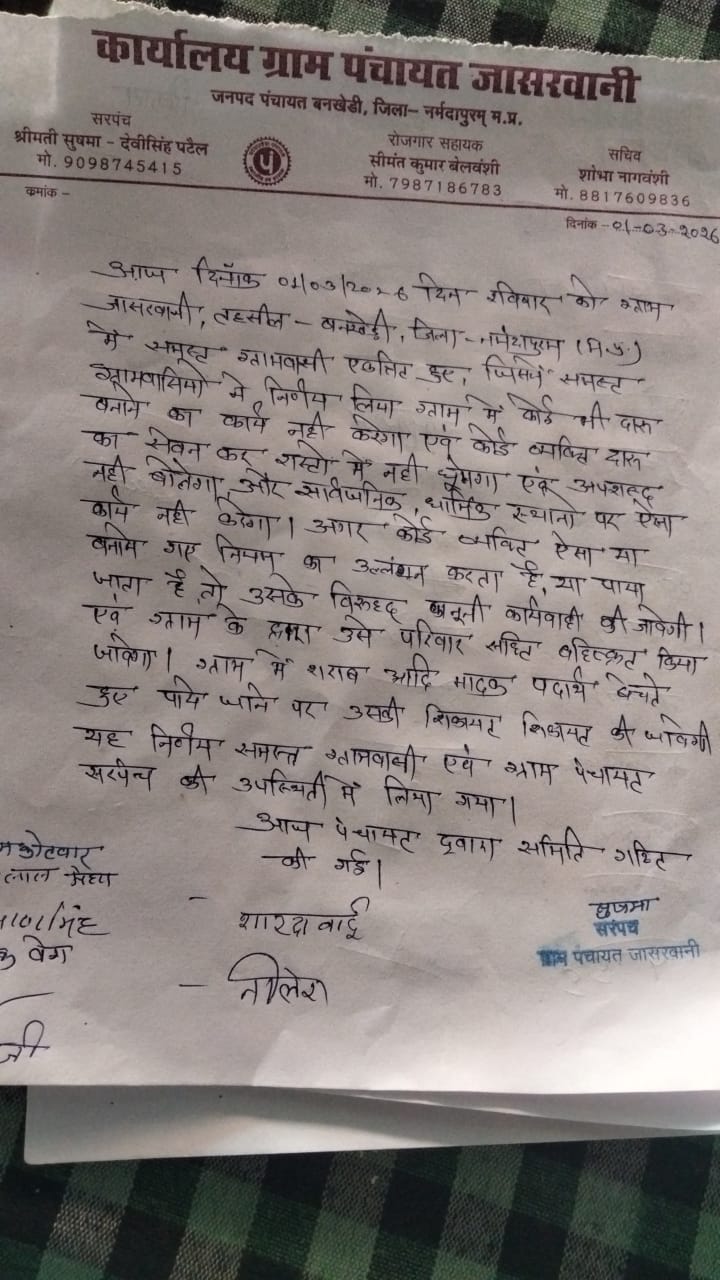 कार्यालय ग्राम पंचायत जासरवानी
जनपद पंचायत बनखेडी, जिला– नर्मदापुरम् म.प्र.
सरपंच
श्रीमती सुषमा - देवीसिंह पटैल
मो. 9098745415
रोजगार सहायक
सीमंत कुमार बेलवंशी
मो. 7987186783
सचिव
शोभा नागवंशी
मो. 8817609836
कमांक –
दिनांक –01-03-2026
आज दिनाँक 01/03/2026 दिन रविवार को ग्राम
जासरवानी, तहसील - बनखेडी, जिला - नर्मदापुरम (म.प्र.)
में समस्त ग्रामवासी एकत्रित हुए, जिसमें समस्त
ग्रामवासियों ने निर्णय लिया ग्राम में कोई भी दारू
बनाने का कार्य नही करेगा एवं कोई व्यक्ति दारू
का सेवन कर रास्तो में नही घूमेगा एवं अपशब्द
नही बोलेगा, और सार्वजनिक, धार्मिक स्थानो पर ऐसा
कार्य नही करेगा। अगर कोई व्यक्ति ऐसा या
बनाये गए नियम का उल्लंघन करता है, या पाया
जाता है, तो उसके विरूध्द कानूनी कार्यवाही की जावेगी।
एवं ग्राम के द्वारा उसे परिवार सहित बहिष्कृत किया
जावेगा। ग्राम में शराब आदि मादक पदार्थ बेचते
हुए पाये जाने पर उसकी शिकायत शिकायत की जावेगी
यह निर्णय समस्त ग्रामवासी एवं ग्राम पंचायत
सरपंच की उपस्थिती में लिया गया।
आज पंचायत द्वारा समिति गठित
की गई।
कोटवार
लाल मेघा
- शारदा बाई
- नीलेश
सुषमा
सरपंच
ग्राम पंचायत जासरवानी